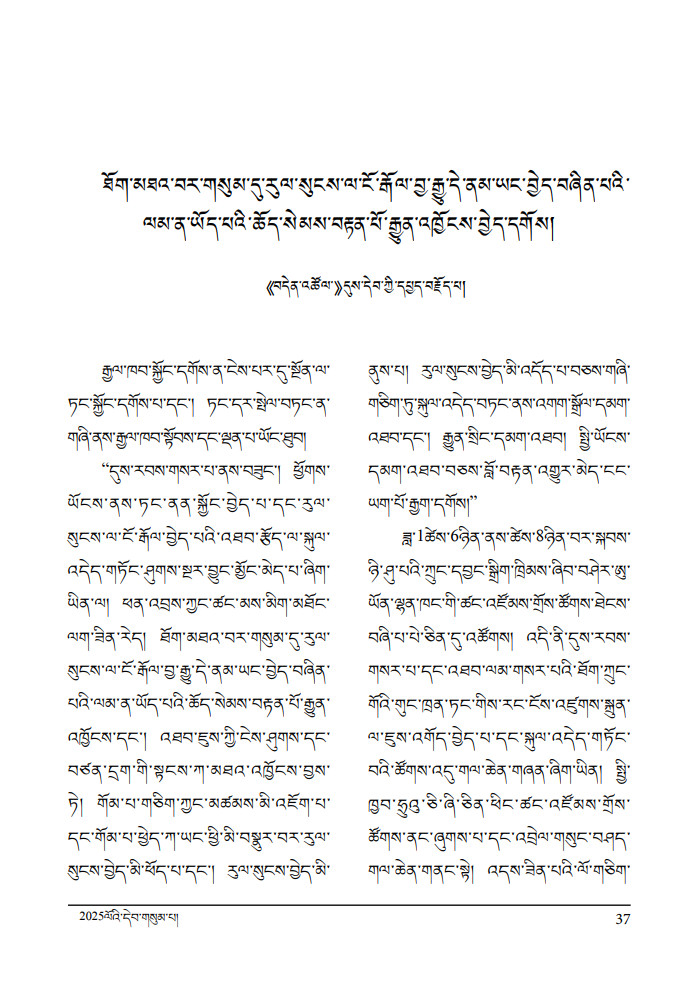 ཐོག་མཐའ་བར་གསུམ་དུ་རུལ་སུངས་ལ་ངོ་རྒོལ་བྱ་རྒྱུ་དེ་ནམ་ཡང་བྱེད་བཞིན་པའི་
ལམ་ན་ཡོད་པའི་ཆོད་སེམས་བརྟན་པོ་རྒྱུན་འཁྱོངས་བྱེད་དགོས།
《བདེན་འཚོལ་》དུས་དེབ་ཀྱི་དཔྱད་བརྗོད་པ།
རྒྱལ་ཁབ་སྐྱོང་དགོས་ན་ངེས་པར་དུ་སྔོན་ལ་
ཏང་སྐྱོང་དགོས་པ་དང་། ཏང་དར་སྤེལ་བཏང་ན་
གཞི་ནས་རྒྱལ་ཁབ་སྟོབས་དང་ལྡན་པ་ཡོང་ཐུབ།
“དུས་རབས་གསར་པ་ནས་བཟུང་། ཕྱོགས་
ཡོངས་ནས་ཏང་ནན་སྐྱོང་བྱེད་པ་དང་རུལ་
སུངས་ལ་ངོ་རྒོལ་བྱེད་པའི་འཐབ་རྩོད་ལ་སྐུལ་
འདེད་གཏོང་ཤུགས་སྔར་བྱུང་མྱོང་མེད་པ་ཞིག་
ཡིན་ལ། ཕན་འབྲས་ཀྱང་ཚང་མས་མིག་མཐོང་
ལག་ཟིན་རེད། ཐོག་མཐའ་བར་གསུམ་དུ་རུལ་
སུངས་ལ་ངོ་རྒོལ་བྱ་རྒྱུ་དེ་ནམ་ཡང་བྱེད་བཞིན་
པའི་ལམ་ན་ཡོད་པའི་ཆོད་སེམས་བརྟན་པོ་རྒྱུན་
འཁྱོངས་དང་། འཐབ་ཇུས་ཀྱི་ངེས་ཤུགས་དང་
བཙན་དྲག་གི་སྟངས་ཀ་མཐའ་འཁྱོངས་བྱས་
ཏེ། གོམ་པ་གཅིག་ཀྱང་མཚམས་མི་འཇོག་པ་
དང་གོམ་པ་ཕྱེད་ཀ་ཡང་ཕྱི་མི་བསྣུར་བར་རུལ་
སུངས་བྱེད་མི་ཕོད་པ་དང་། རུལ་སུངས་བྱེད་མི་
ནུས་པ། རུལ་སུངས་བྱེད་མི་འདོད་པ་བཅས་གཞི་
གཅིག་ཏུ་སྐུལ་འདེད་བཏང་ནས་འགག་སྒྲོལ་དམག་
འཐབ་དང་། རྒྱུན་སྲིང་དམག་འཐབ། སྤྱི་ཡོངས་
དམག་འཐབ་བཅས་བློ་བརྟན་འགྱུར་མེད་ངང་
ཡག་པོ་རྒྱག་དགོས།”
ཟླ་1ཚེས་6ཉིན་ནས་ཚེས་8ཉིན་བར་སྐབས་
ཉི་ཤུ་པའི་ཀྲུང་དབྱང་སྒྲིག་ཁྲིམས་ཞིབ་བཤེར་ཨུ་
ཡོན་ལྷན་ཁང་གི་ཚང་འཛོམས་གྲོས་ཚོགས་ཐེངས་
བཞི་པ་པེ་ཅིན་དུ་འཚོགས། འདི་ནི་དུས་རབས་
གསར་པ་དང་འཐབ་ལམ་གསར་པའི་ཐོག་ཀྲུང་
གོའི་གུང་ཁྲན་ཏང་གིས་རང་ངོས་འཛུགས་སྐྲུན་
ལ་ཇུས་འགོད་བྱེད་པ་དང་སྐུལ་འདེད་གཏོང་
བའི་ཚོགས་འདུ་གལ་ཆེན་གཞན་ཞིག་ཡིན། སྤྱི་
ཁྱབ་ཧྲུའུ་ཅི་ཞི་ཅིན་ཕིང་ཚང་འཛོམས་གྲོས་
ཚོགས་ནང་ཞུགས་པ་དང་འབྲེལ་གསུང་བཤད་
གལ་ཆེན་གནང་སྟེ། འདས་ཟིན་པའི་ལོ་གཅིག་
2025ལོའི་དེབ་གསུམ་པ།
37